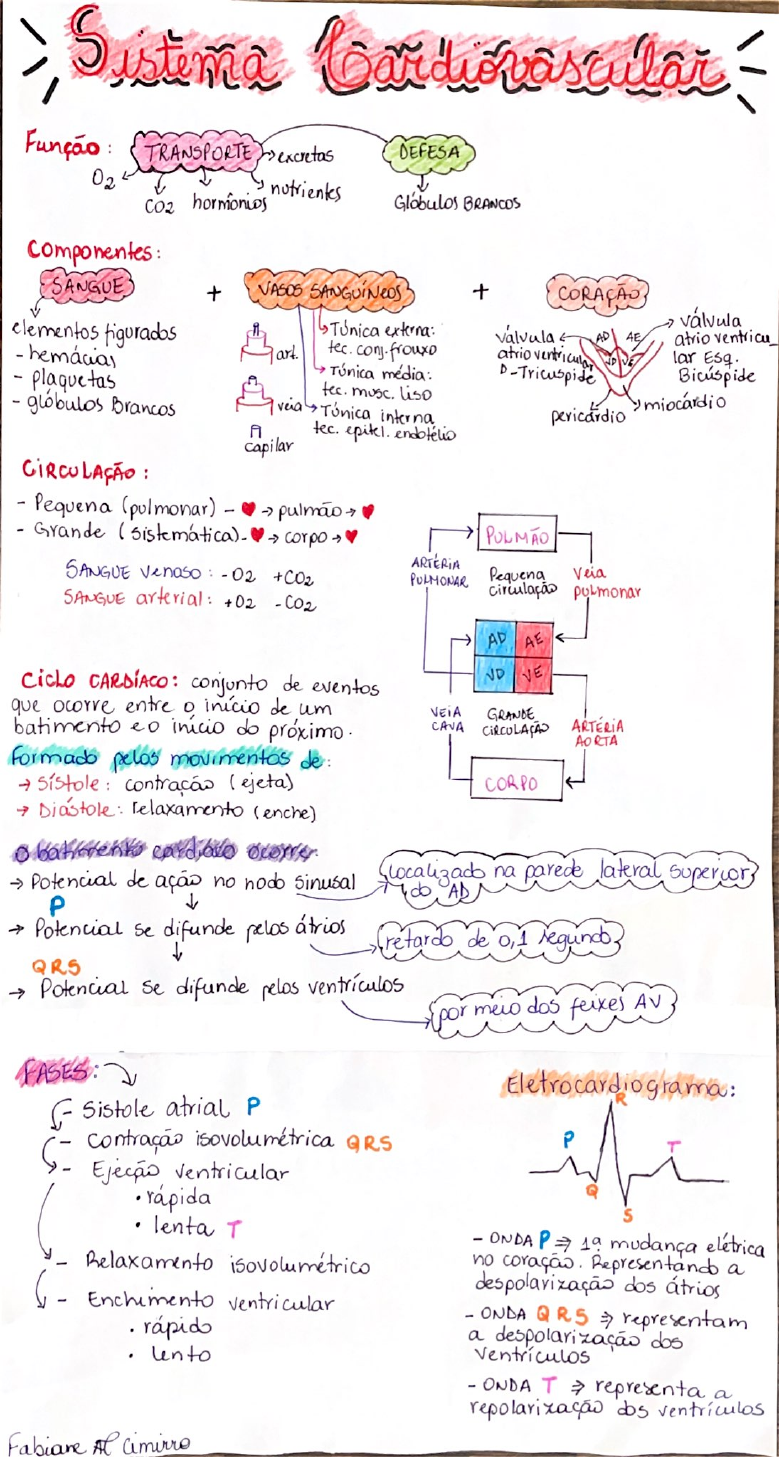 Sistema Cardiovascular
Função: TRANSPORTE → excretas DEFESA
O2 CO2 hormônios nutrientes Glóbulos BRANCOS
Componentes:
SANGUE + VASOS SANGUÍNEOS + CORAÇÃO
elementos figurados
- hemácias
- plaquetas
- glóbulos Brancos
art.
veia
capilar
→ Túnica externa:
tec. conj. frouxo
→ Túnica média:
tec. musc. liso
→ Túnica interna
tec. epitel. endotélio
válvula
atrioventricular
D-Tricuspide
AD AE
VD VE
válvula
atrio ventricu_
lar Esq.
Bicúspide
pericárdio
miocárdio
CIRCULAÇÃO:
- Pequena (pulmonar) - ♥ → pulmão → ♥
- Grande (sistemática) - ♥ → corpo → ♥
SANGUE venoso: -O2 +CO2
SANGUE arterial: +O2 -CO2
PULMÃO
ARTÉRIA
PULMONAR
Pequena
circulação
Veia
pulmonar
AD AE
VD VE
VEIA
CAVA
GRANDE
CIRCULAÇÃO
ARTÉRIA
AORTA
CORPO
Ciclo CARDÍACO: conjunto de eventos
que ocorre entre o início de um
batimento e o início do próximo.
Formado pelos movimentos de:
→ Sístole: contração (ejeta)
→ Diástole: relaxamento (enche)
O batimento cardíaco ocorre:
→ Potencial de ação no nodo sinusal
localizado na parede lateral superior
do AD
P
→ Potencial se difunde pelos átrios
retardo de 0,1 segundo
QRS
→ Potencial se difunde pelos ventrículos
por meio dos feixes AV
FASES:
- Sistole atrial P
- Contração isovolumétrica QRS
- Ejeção ventricular
• rápida
• lenta T
- Relaxamento isovolumétrico
- Enchimento ventricular
• rápido
• lento
Eletrocardiograma:
R
P
T
Q
S
- ONDA P ⇒ 1ª mudança elétrica
no coração. Representando a
despolarização dos átrios
- ONDA QRS ⇒ representam
a despolarização dos
ventrículos
- ONDA T ⇒ representa a
repolarização dos ventrículos
Fabiane Al Cimirro